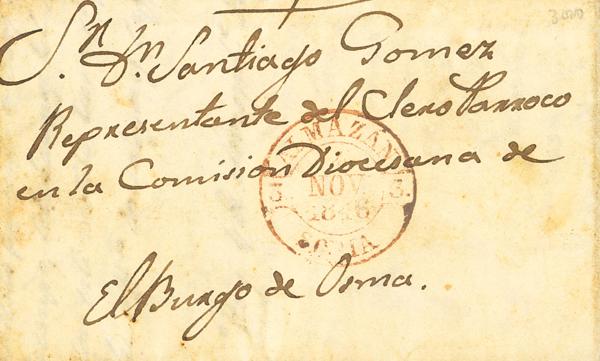 Sr. Dn. Santiago Gomez
Representante del Clero Parroco
en la Comision Diocesana de
El Burgo de Osma.
ALMAZAN
NOV
1846
SORIA
3.